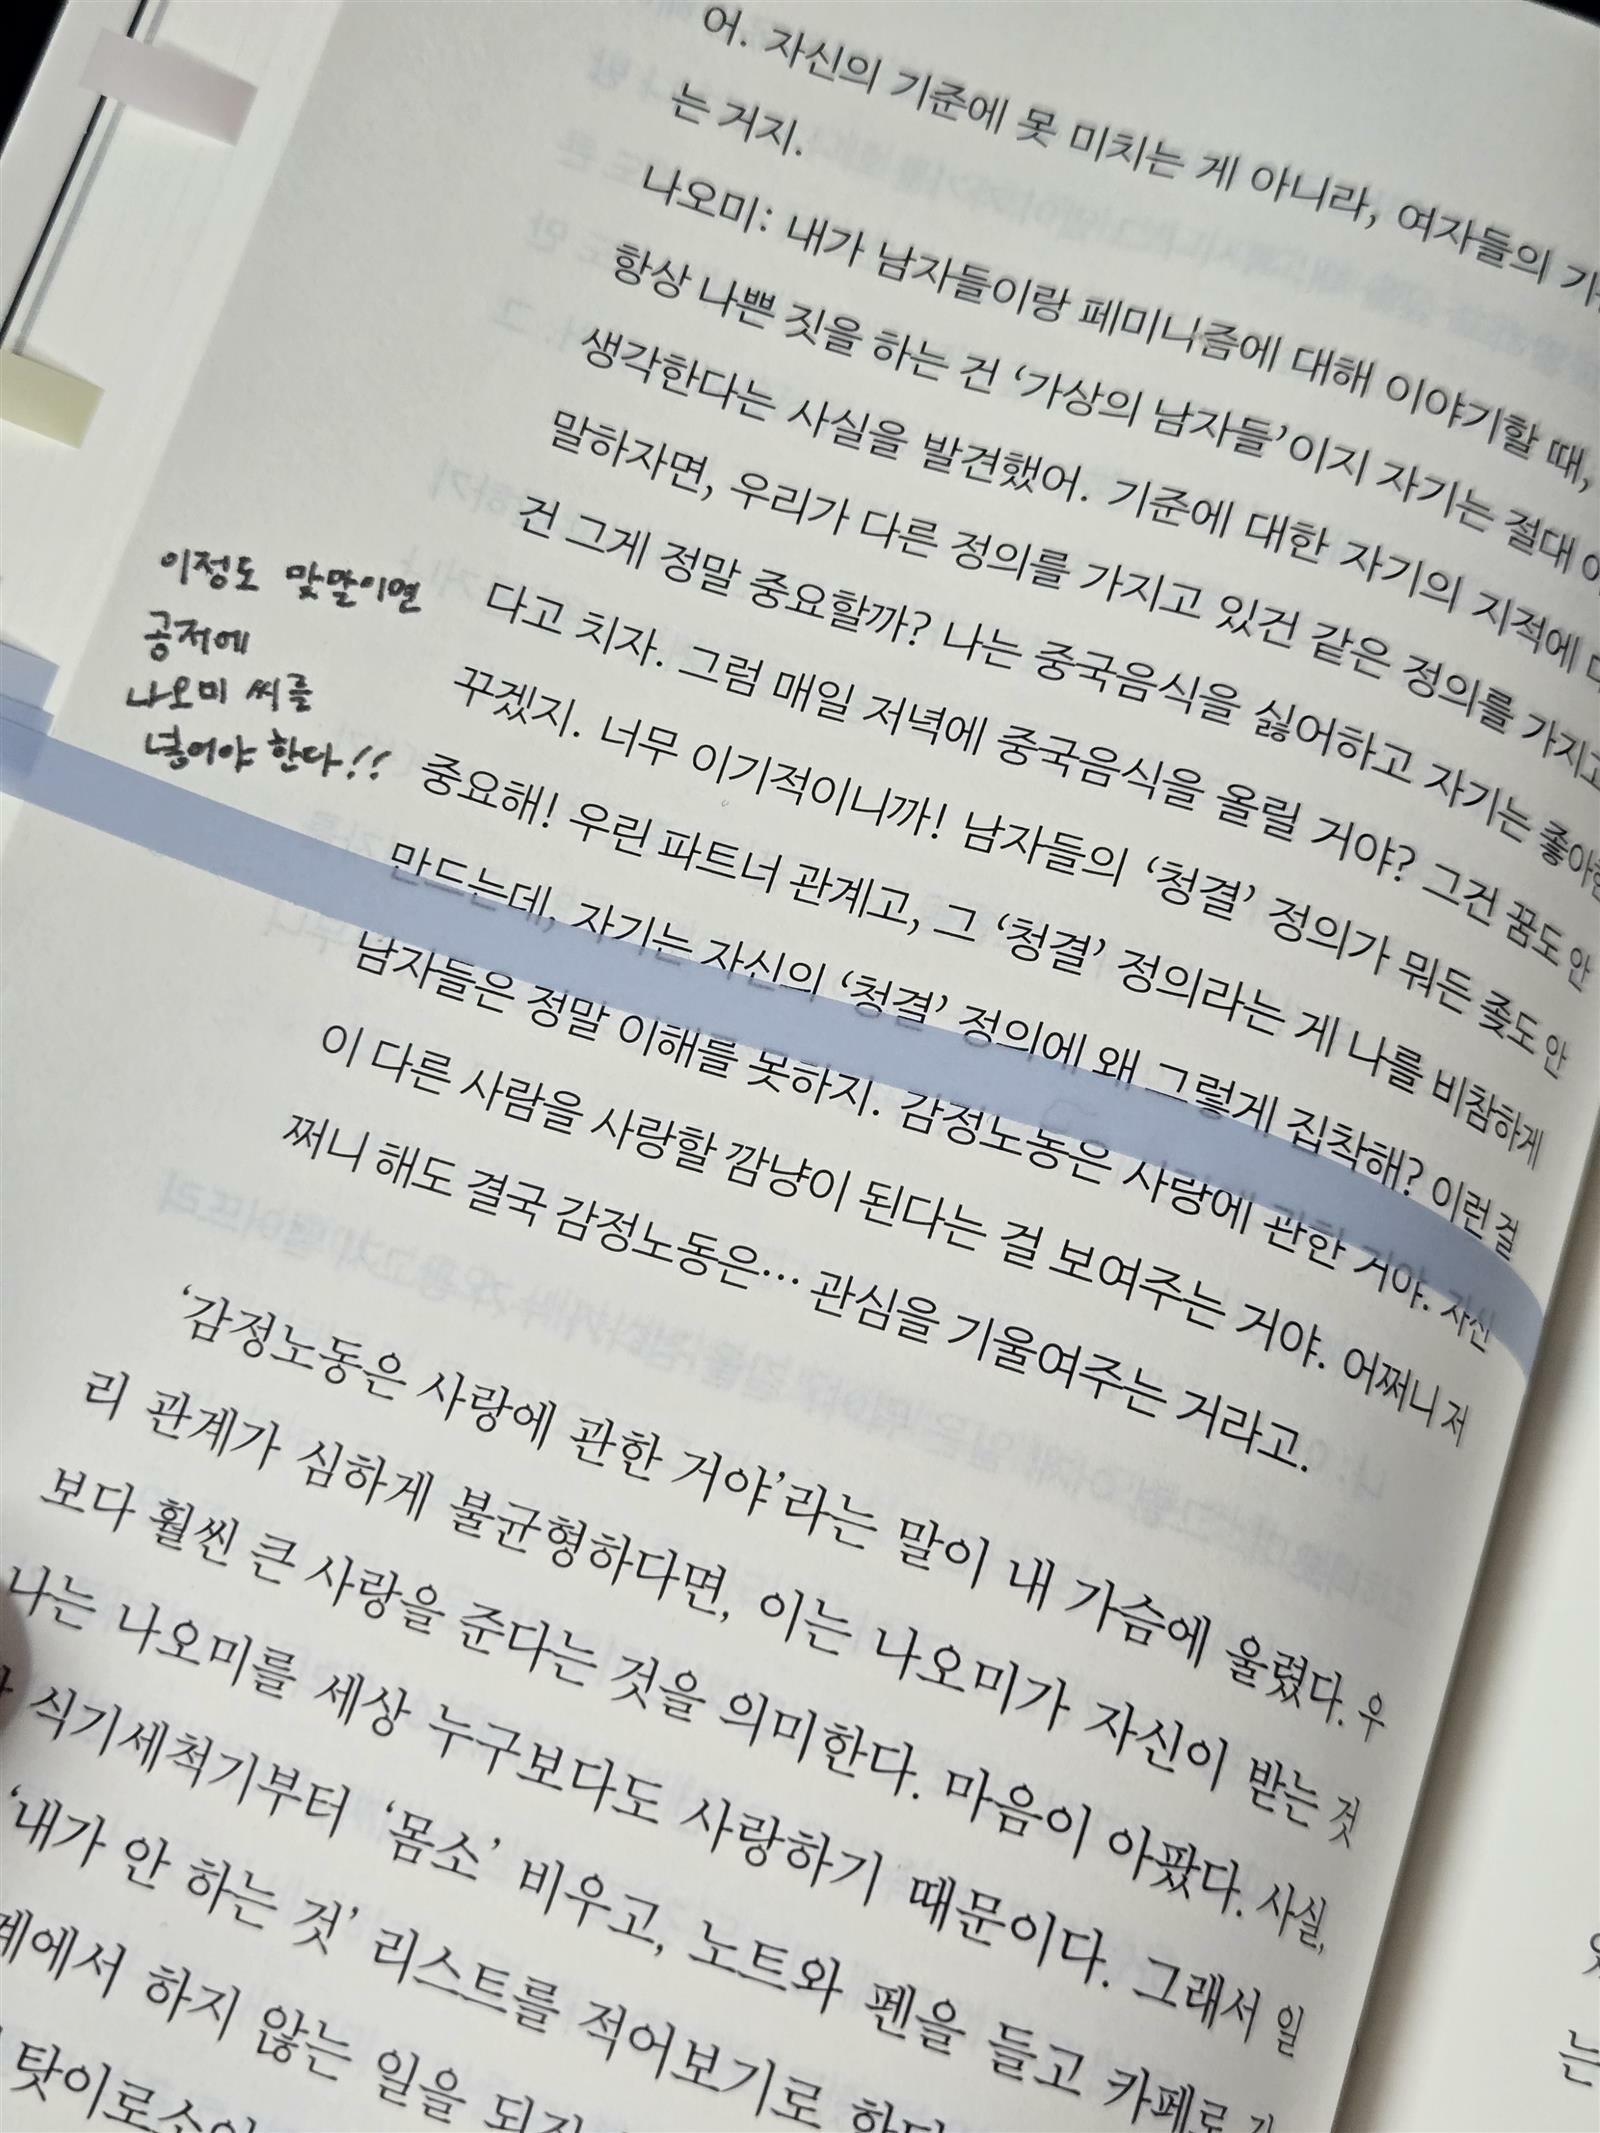 어. 자신의 기준에 못 미치는 게 아니라, 여자들의
는 거지.
나오미: 내가 남자들이랑 페미니즘에 대해 이야기할 때,
항상 나쁜 짓을 하는 건 ‘가상의 남자들’이지 자기는 절대
생각한다는 사실을 발견했어. 기준에 대한 자기의 지적에
말하자면, 우리가 다른 정의를 가지고 있건 같은 정의를 가지고
건 그게 정말 중요할까? 나는 중국음식을 싫어하고 자기는
다고 치자. 그럼 매일 저녁에 중국음식을 올릴 거야? 그건 꿈도 안
꾸겠지. 너무 이기적이니까! 남자들의 ‘청결’ 정의가 뭐든 좆도 안
중요해! 우린 파트너 관계고, 그 ‘청결’ 정의라는 게 나를 비참하게
만드는데, 자기는 자신의 ‘청결’ 정의에 왜 그렇게 집착해? 이런 걸
남자들은 정말 이해를 못하지. 감정노동은 사랑에 관한 거야. 자신
이 다른 사람을 사랑할 깜냥이 된다는 걸 보여주는 거야. 어쩌니 저
쩌니 해도 결국 감정노동은… 관심을 기울여주는 거라고.
이정도 맞말이면
공저에
나오미 씨를
넣어야 한다!!
‘감정노동은 사랑에 관한 거야’라는 말이 내 가슴에 울렸다. 우
리 관계가 심하게 불균형하다면, 이는 나오미가 자신이 받는 것
보다 훨씬 큰 사랑을 준다는 것을 의미한다. 마음이 아팠다. 사실,
나는 나오미를 세상 누구보다도 사랑하기 때문이다. 그래서 일
식기세척기부터 ‘몸소’ 비우고, 노트와 펜을 들고 카페로
‘내가 안 하는 것’ 리스트를 적어보기로
에서 하지 않는 일을
는